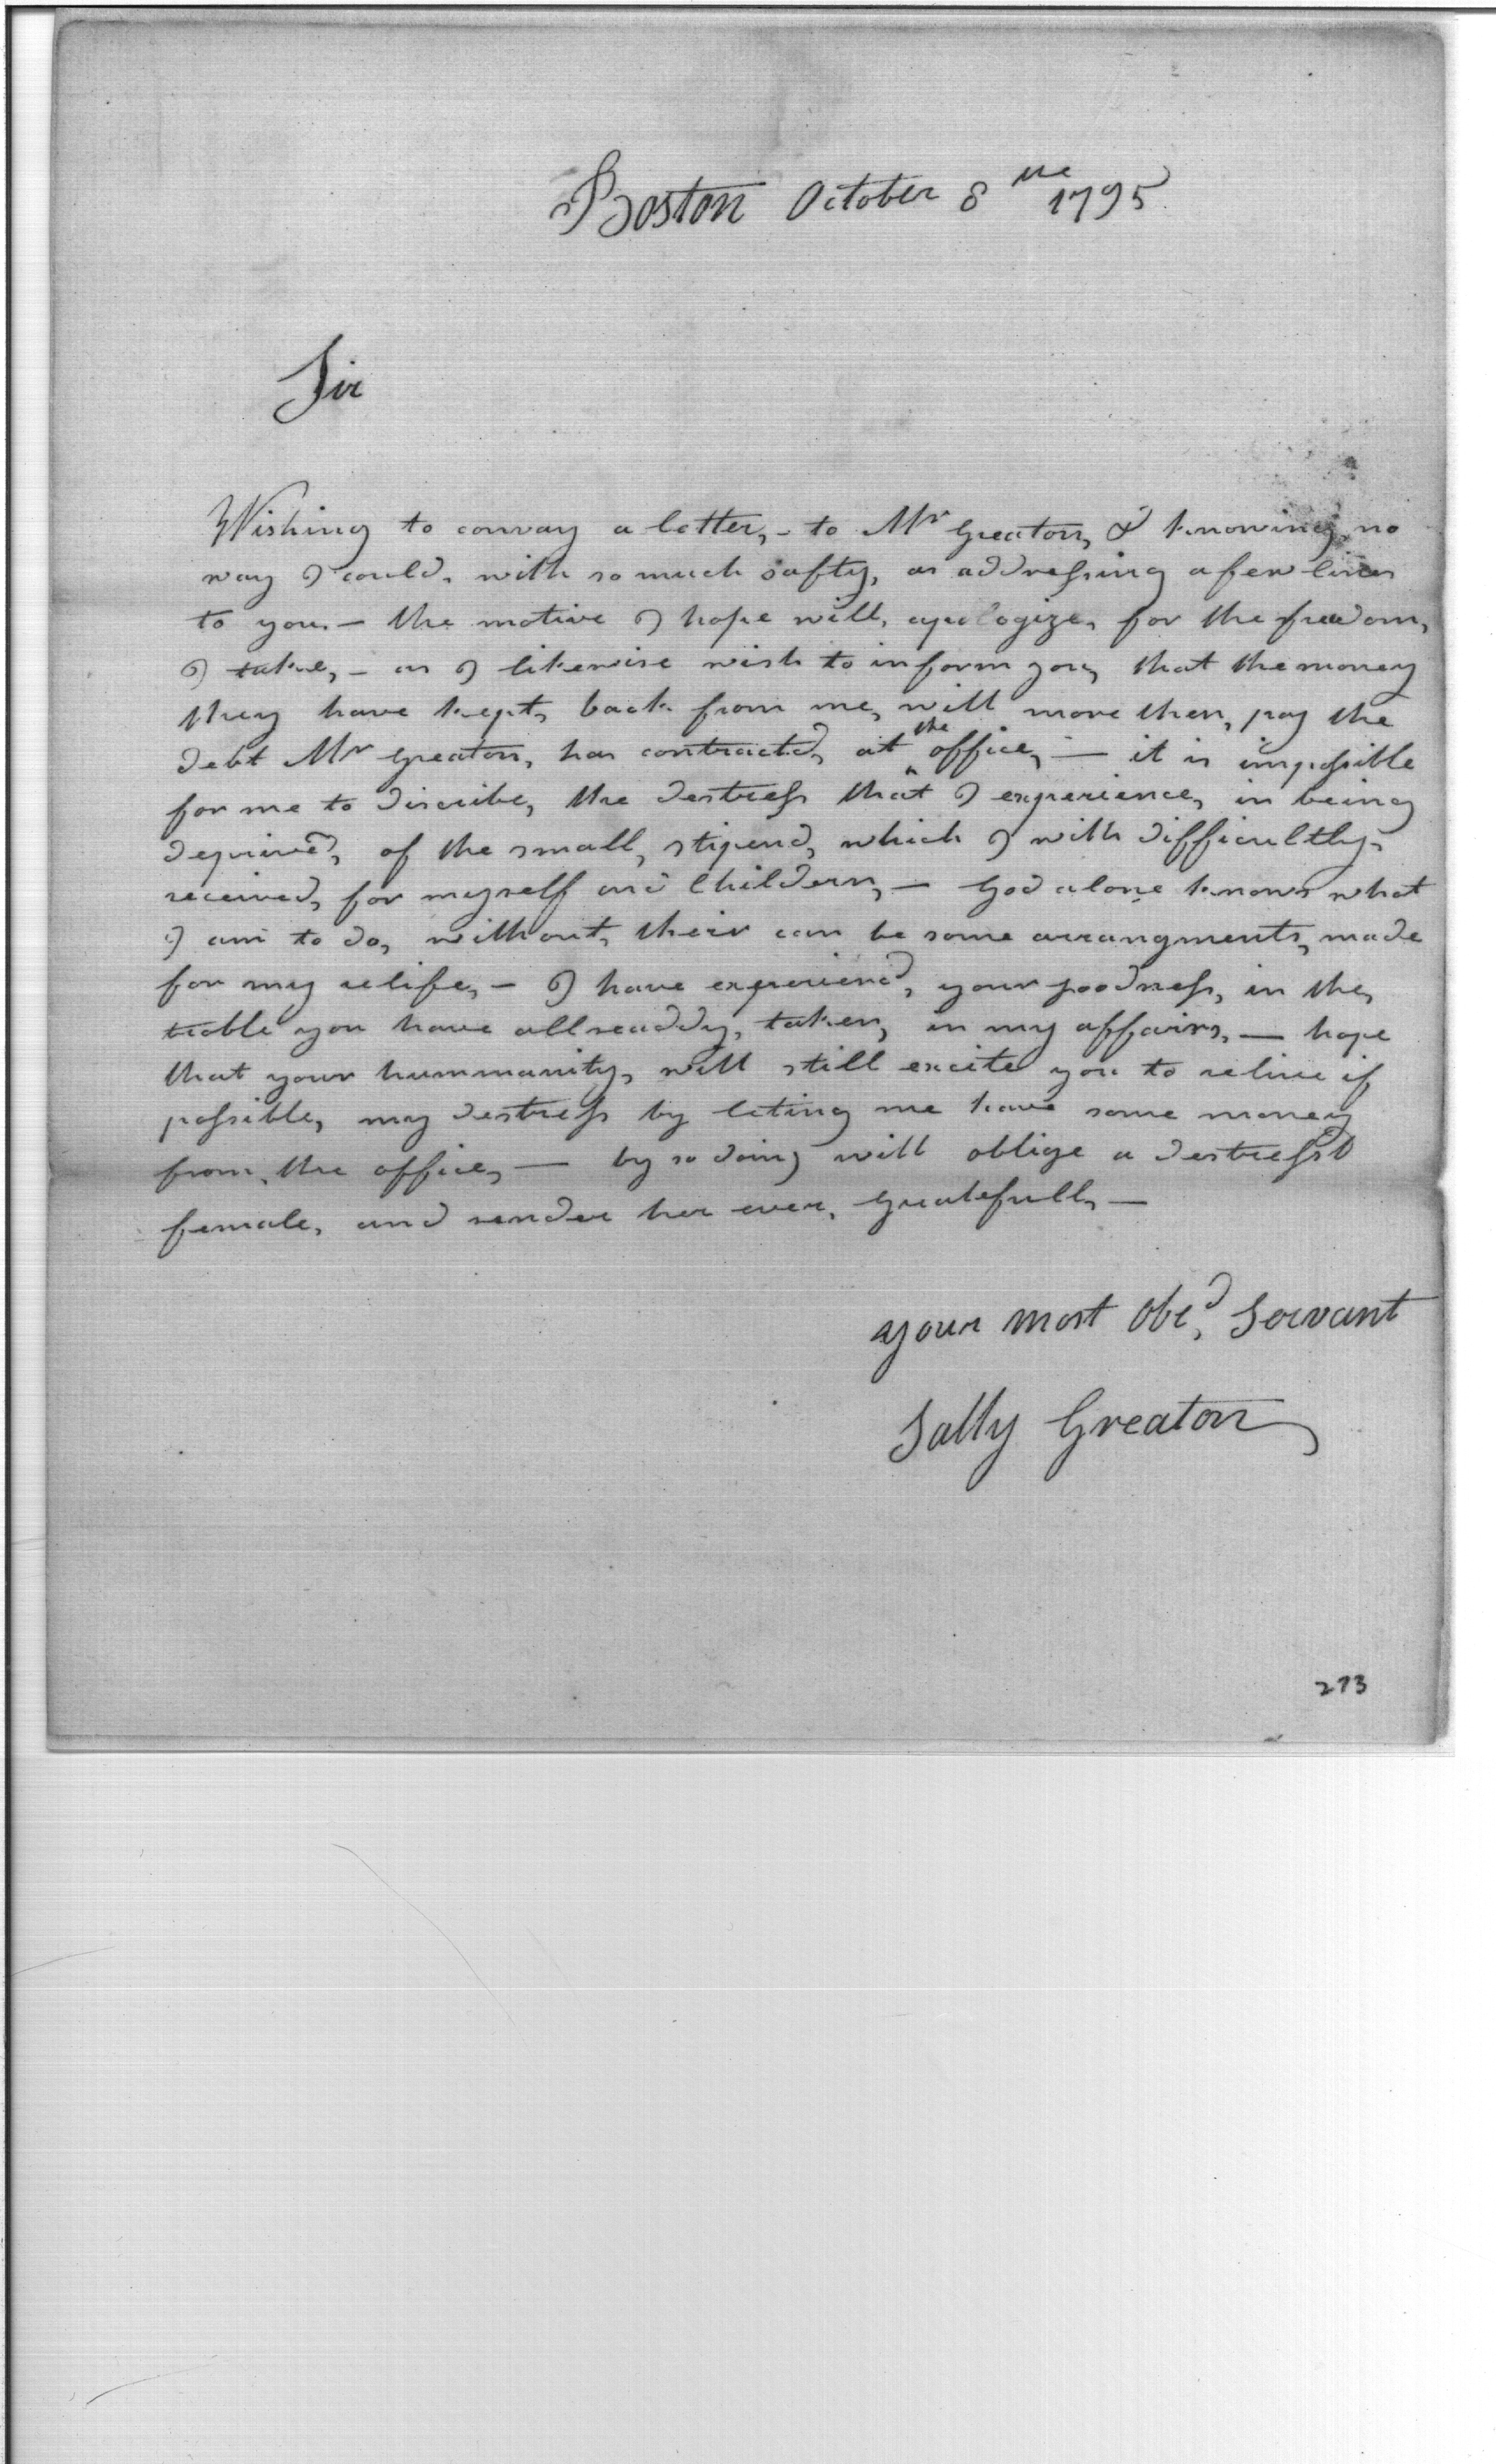 Boston October 8 the 1795
Sir
Wishing to convay a letter, - to Mr Greaton, & knowing no
way I could, with so much safty, as addressing a few lines
to you. — the motive I hope will, apologize, for the freedom,
I take, - as I likewise wish to inform you, that the money
they have kept, back from me, will more then, pay the
debt Mr Greaton, has contracted, at the office, — it is impossible
for me to discribe, the destress that I experience, in being
deprived, of the small, stipend, which I with difficultly,
received, for myself and Childern, — God alone knows what
I am to do, without, their can be some arrangments, made
for my relife, — I have experiencd, your goodness, in the,
troble you have allreaddy, taken, in my affairs, — hope
that your hummanity, will still excite you to relive if
possible, my destress by leting me have some money
from, the office, — by so doing will oblige a destresst
female, and render her ever, Greatefull, —
your most Obed, Servant
Sally Greaton
273